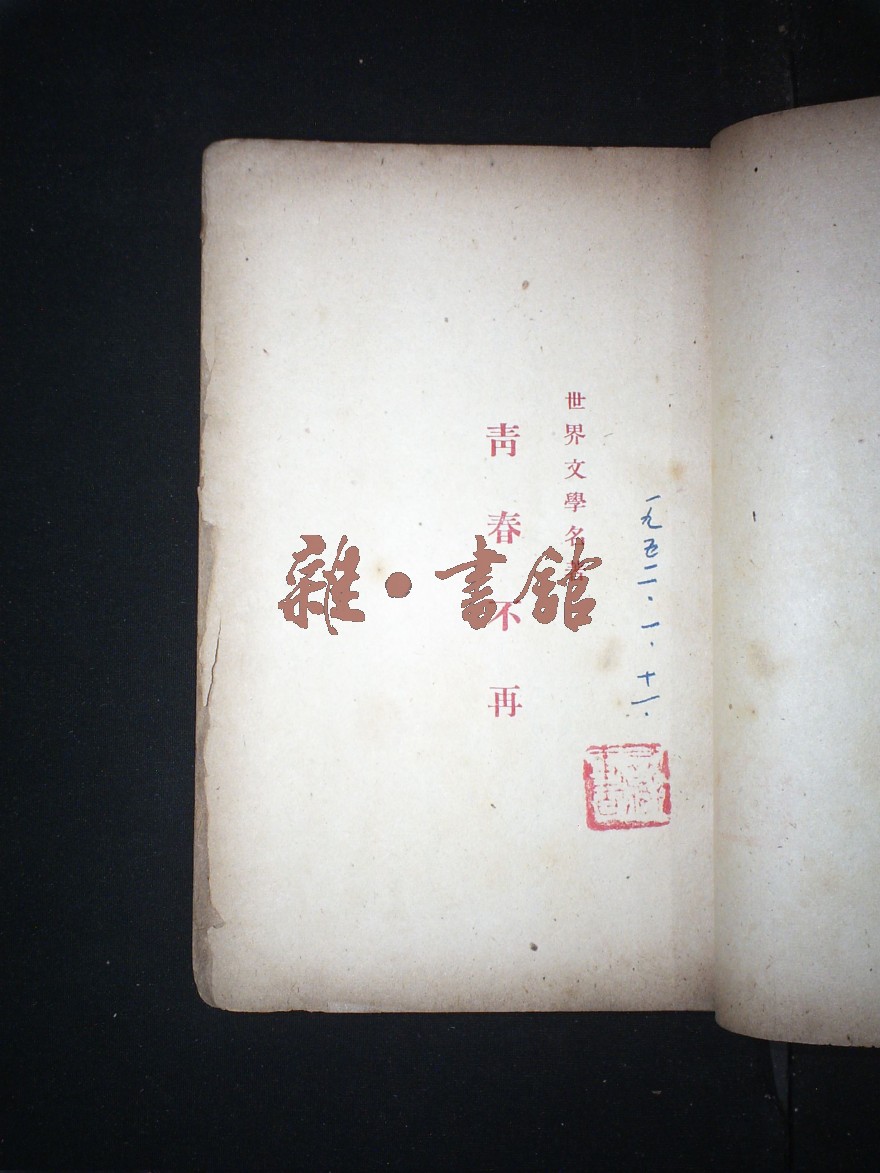 一九五二、一、十一.
世界文學名著
靑春不再
雜·書館